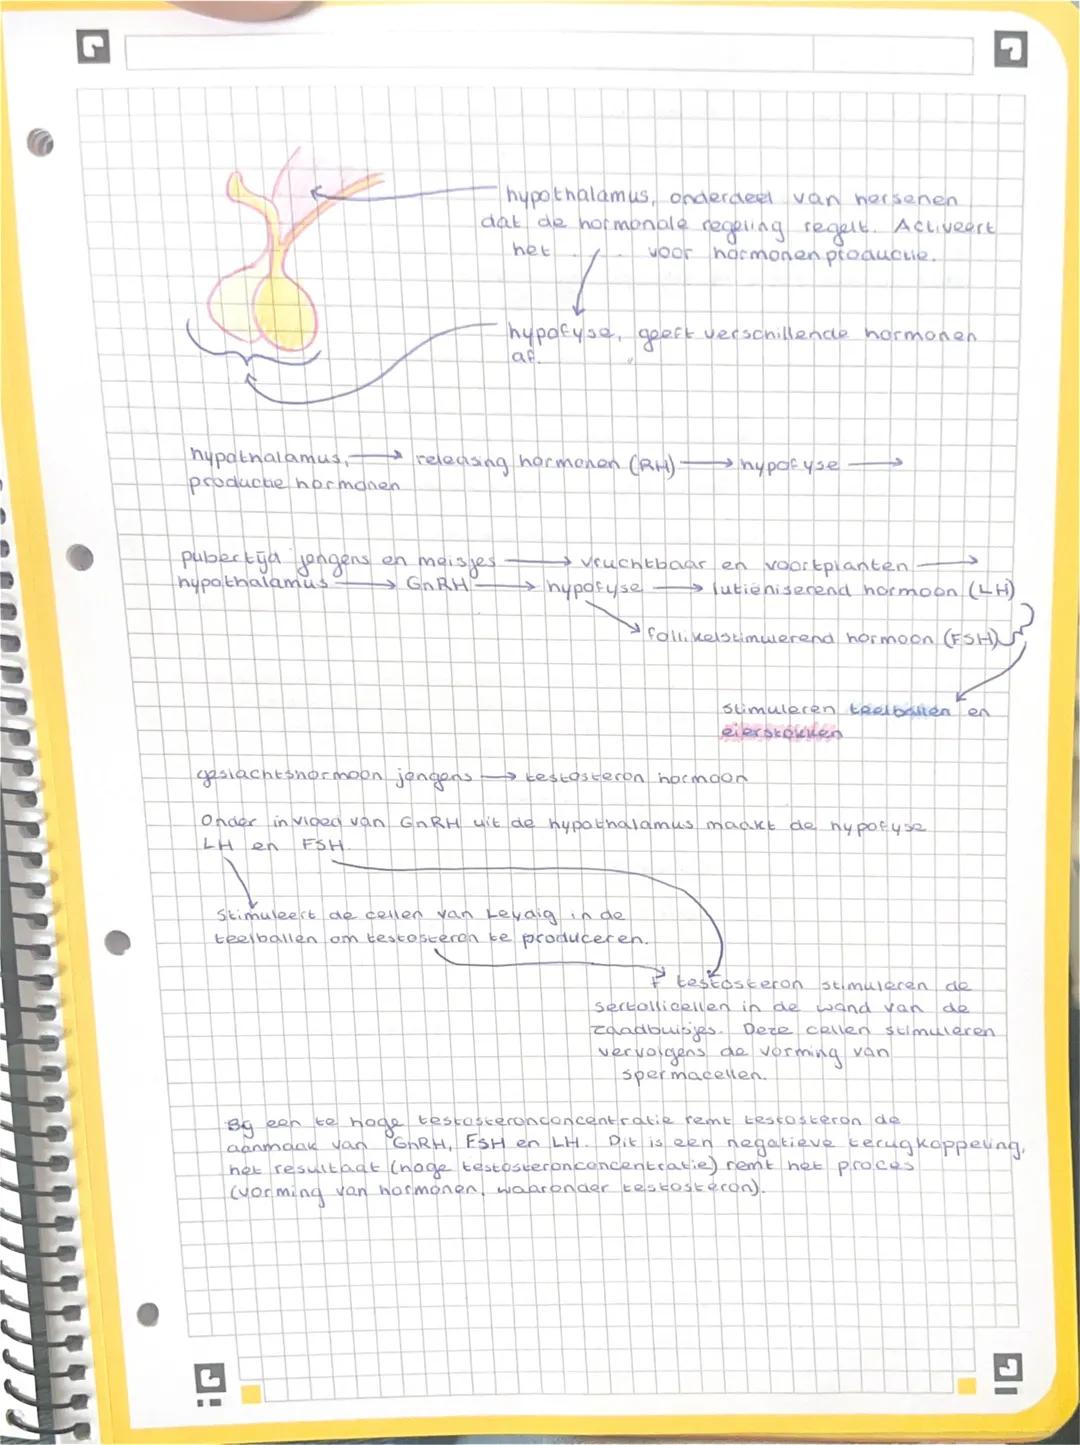 hypothalamus, onderdeel van hersenen
dat de hormonale regeling regelt. Activeert
het . . voor hormonenproductie.
hypofyse, geeft verschillende hormonen
af.
hypothalamus, → releasing hormonen (RH) → hypofyse →
productie hormonen
pubertijd jongens en meisjes → vruchtbaar en voortplanten →
hypothalamus → GnRH → hypofyse → lutieniserend hormoon (LH)
follikelstimulerend hormoon (FSH)
stimuleren teelballen en
eierstokken
geslachtshormoon jongens → testosteron hormoon
Onder invloed van GnRH uit de hypothalamus maakt de hypofyse
LH en FSH.
Stimuleert de cellen van Leydig in de
teelballen om testosteron te produceren.
+ testosteron stimuleren de
sertollicellen in de wand van de
zaadbuisjes. Deze cellen stimuleren
vervolgens de vorming van
spermacellen.
Bij een te hoge testosteronconcentratie remt testosteron de
aanmaak van GnRH, FSH en LH. Dit is een negatieve terugkoppeling,
het resultaat (hoge testosteronconcentratie) remt het proces
(vorming van hormonen, waaronder testosteron).